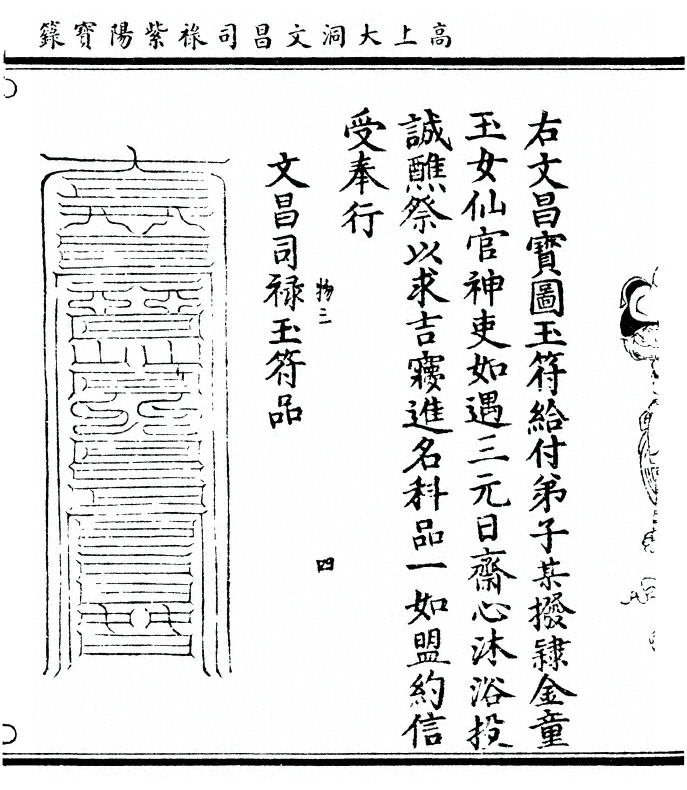 高上大洞文昌司祿紫陽寶籙
右文昌寶圖玉符給付弟子某撥隸金童
玉女仙官神吏如遇三元日齋心沐浴投
誠醮祭以求吉寢進名科品一如盟約信
受奉行
物三
四
文昌司祿玉符品